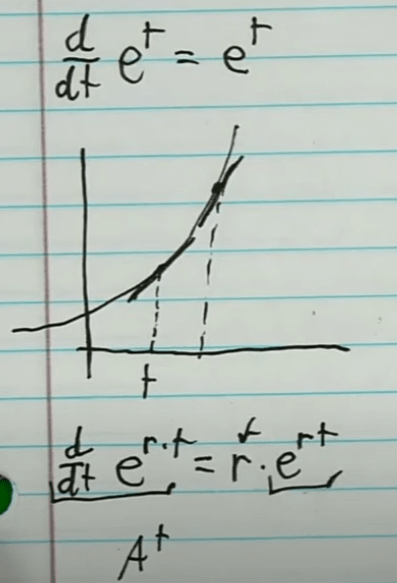 d/dt e^t = e^t
t
d/dt e^{r·t} = r·e^{rt}
A^t